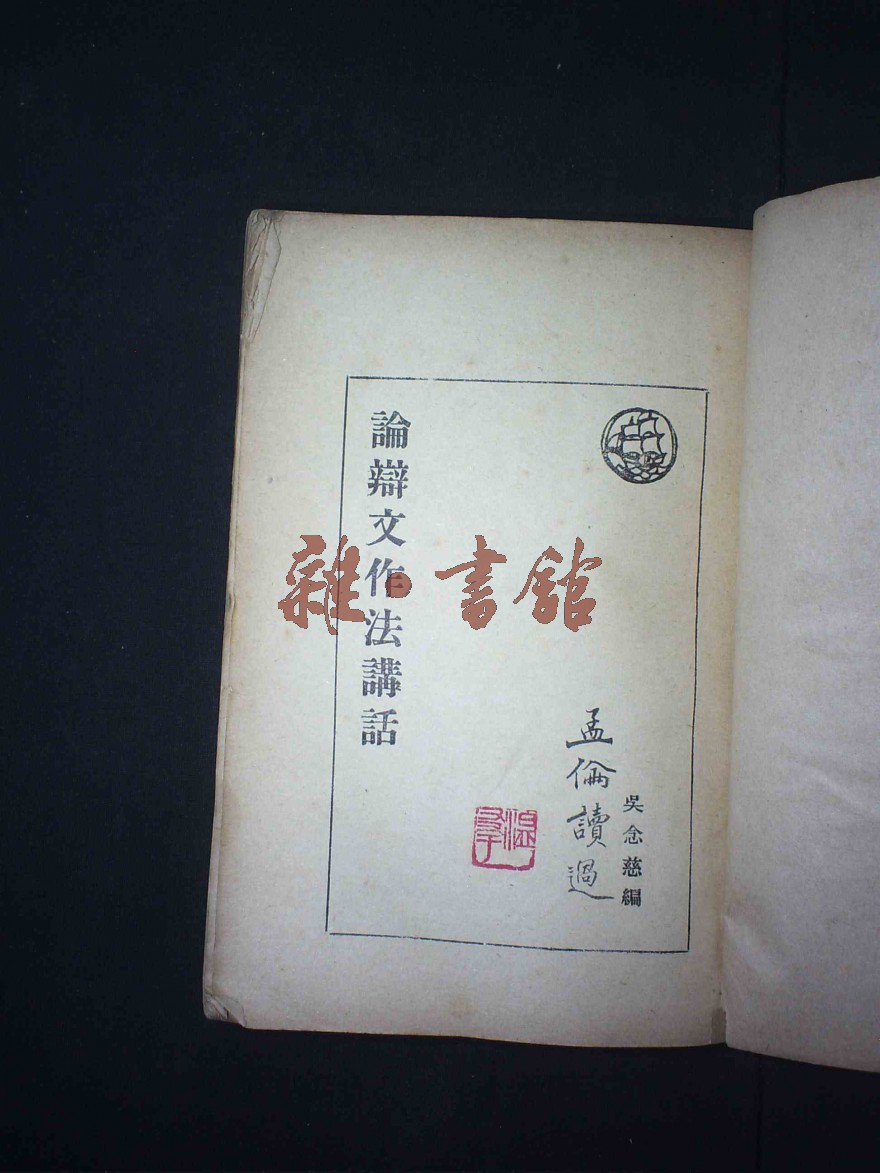 論辯文作法講話
吳念慈編
孟倫讀過
雜·書館